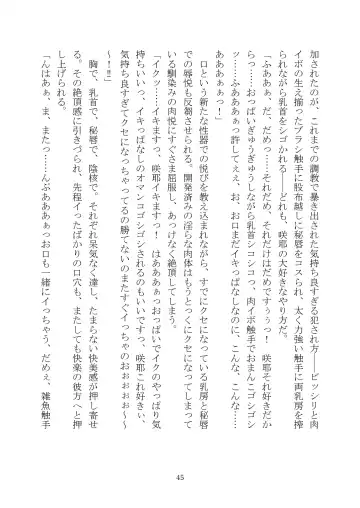 加されたのが、これまでの調教で暴き出された気持ち良すぎる犯され方――ビッシリと肉
イボの生え揃ったブラシ触手に股布越しに秘唇をコスられ、太く力強い触手に両乳房を搾
られながら乳首をシゴかれる――どれも、咲耶の大好きなやり方だ。
「ふああぁ、だ、だめっ……それだめ、それだけはだめですぅぅっ！　咲耶それされた
らっ……おっぱいぎゅうぎゅうしながら乳首シコシコっ、肉イボ触手でおまんこゴシゴシ
ッ……ふああああぁっ許してぇぇ、お、お口まだイキっぱなしなのに、こんな、こんな……
ああああぁっ！」
　口という新たな性器での悦びを教え込まれながら、すでにクセになっている乳房と秘唇
での屈悦も反芻させられる。開発済みの淫らな肉体はもうとっくにクセになってしまって
いる馴染みの肉悦にすぐさま屈服し、あっけなく絶頂してしまう。
「イクッ……イキますっ、咲耶イキますっ！　はあああぁっおっぱいでイクのやっぱり気
持ちいいっ、イキっぱなしのオマンコゴシゴシされるのもいいですっ、咲耶これ好きぃ、
気持ち良すぎてクセになっちゃってるの勝てないのまたすぐイっちゃのおぉおぉおぉ～
～！‼」
　胸で、乳首で、秘唇で、陰核で。それぞれ呆気なく達し、たまらない快美感が押し寄せ
る。その絶頂感に引きづられ、先程イったばかりの口穴も、またしても快楽の彼方へと押
し上げられる。
「んはあぁ、ま、またっ……んぶあああぁっお口も一緒にイっちゃう、だめぇ、雑魚触手
45